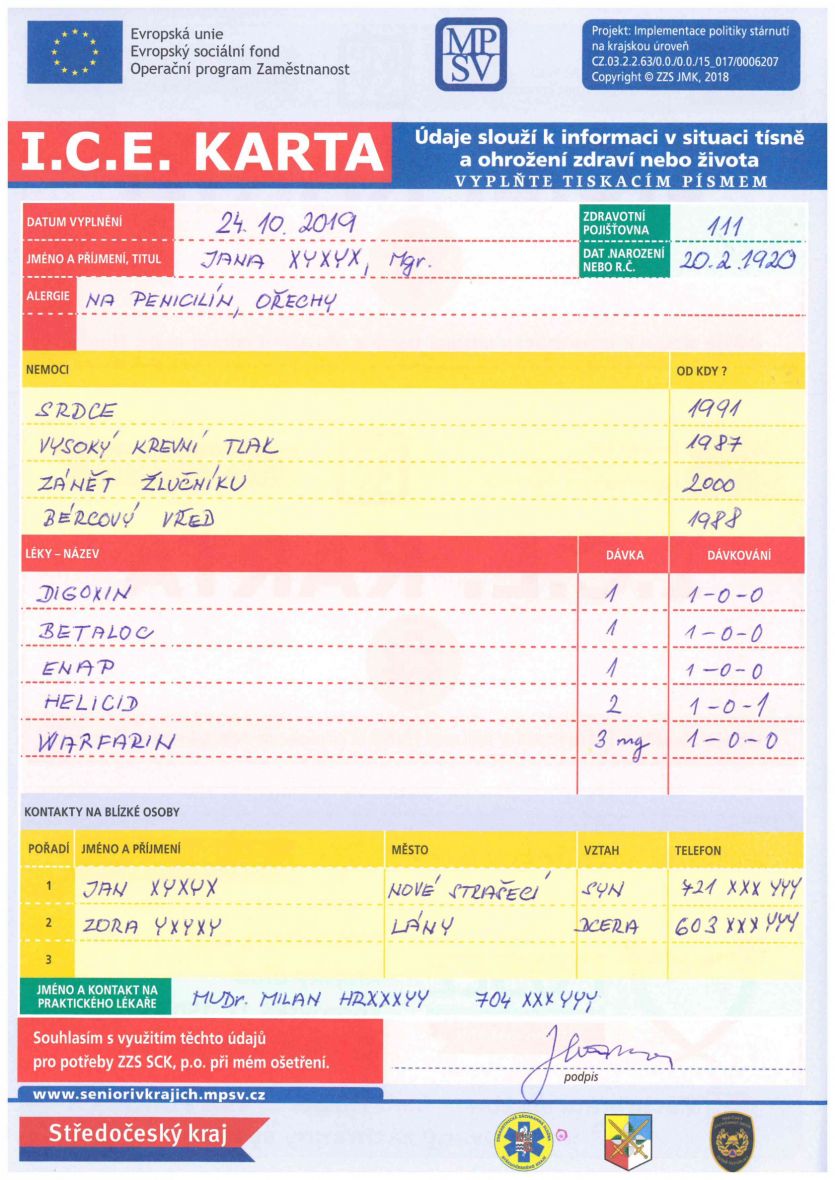 Evropská unie
Evropský sociální fond
Operační program Zaměstnanost
MP
SV
Projekt: Implementace politiky stárnutí
na krajskou úroveň
CZ.03.2.2.63/0.0./0.0./15_017/0006207
Copyright © ZZS JMK, 2018
I.C.E. KARTA
Údaje slouží k informaci v situaci tísně
a ohrožení zdraví nebo života
VYPLŇTE TISKACÍM PÍSMEM
DATUM VYPLNĚNÍ 24. 10. 2019
ZDRAVOTNÍ
POJIŠŤOVNA 111
JMÉNO A PŘÍJMENÍ, TITUL JANA XYXYX, Mgr.
DAT .NAROZENÍ
NEBO R.Č. 20.2.1920
ALERGIE NA PENICILÍN, OŘECHY
NEMOCI OD KDY ?
SRDCE 1991
VYSOKÝ KREVNÍ TLAK 1987
ZÁNĚT ŽLUČNÍKU 2000
BÉRCOVÝ VŘED 1988
LÉKY – NÁZEV DÁVKA DÁVKOVÁNÍ
DIGOXIN 1 1-0-0
BETALOC 1 1-0-0
ENAP 1 1-0-0
HELICID 2 1-0-1
WARFARIN 3 mg 1-0-0
KONTAKTY NA BLÍZKÉ OSOBY
POŘADÍ JMÉNO A PŘÍJMENÍ MĚSTO VZTAH TELEFON
1 JAN XYXYX NOVÉ STRAŠECÍ SYN 721 XXX YYY
2 ZORA YXYXY LÁNY DCERA 603 XXX YYY
3
JMÉNO A KONTAKT NA
PRAKTICKÉHO LÉKAŘE MUDr. MILAN HRXXXYY 704 XXX YYY
Souhlasím s využitím těchto údajů
pro potřeby ZZS SCK, p.o. při mém ošetření.
podpis
www.seniorivkrajich.mpsv.cz
Středočeský kraj